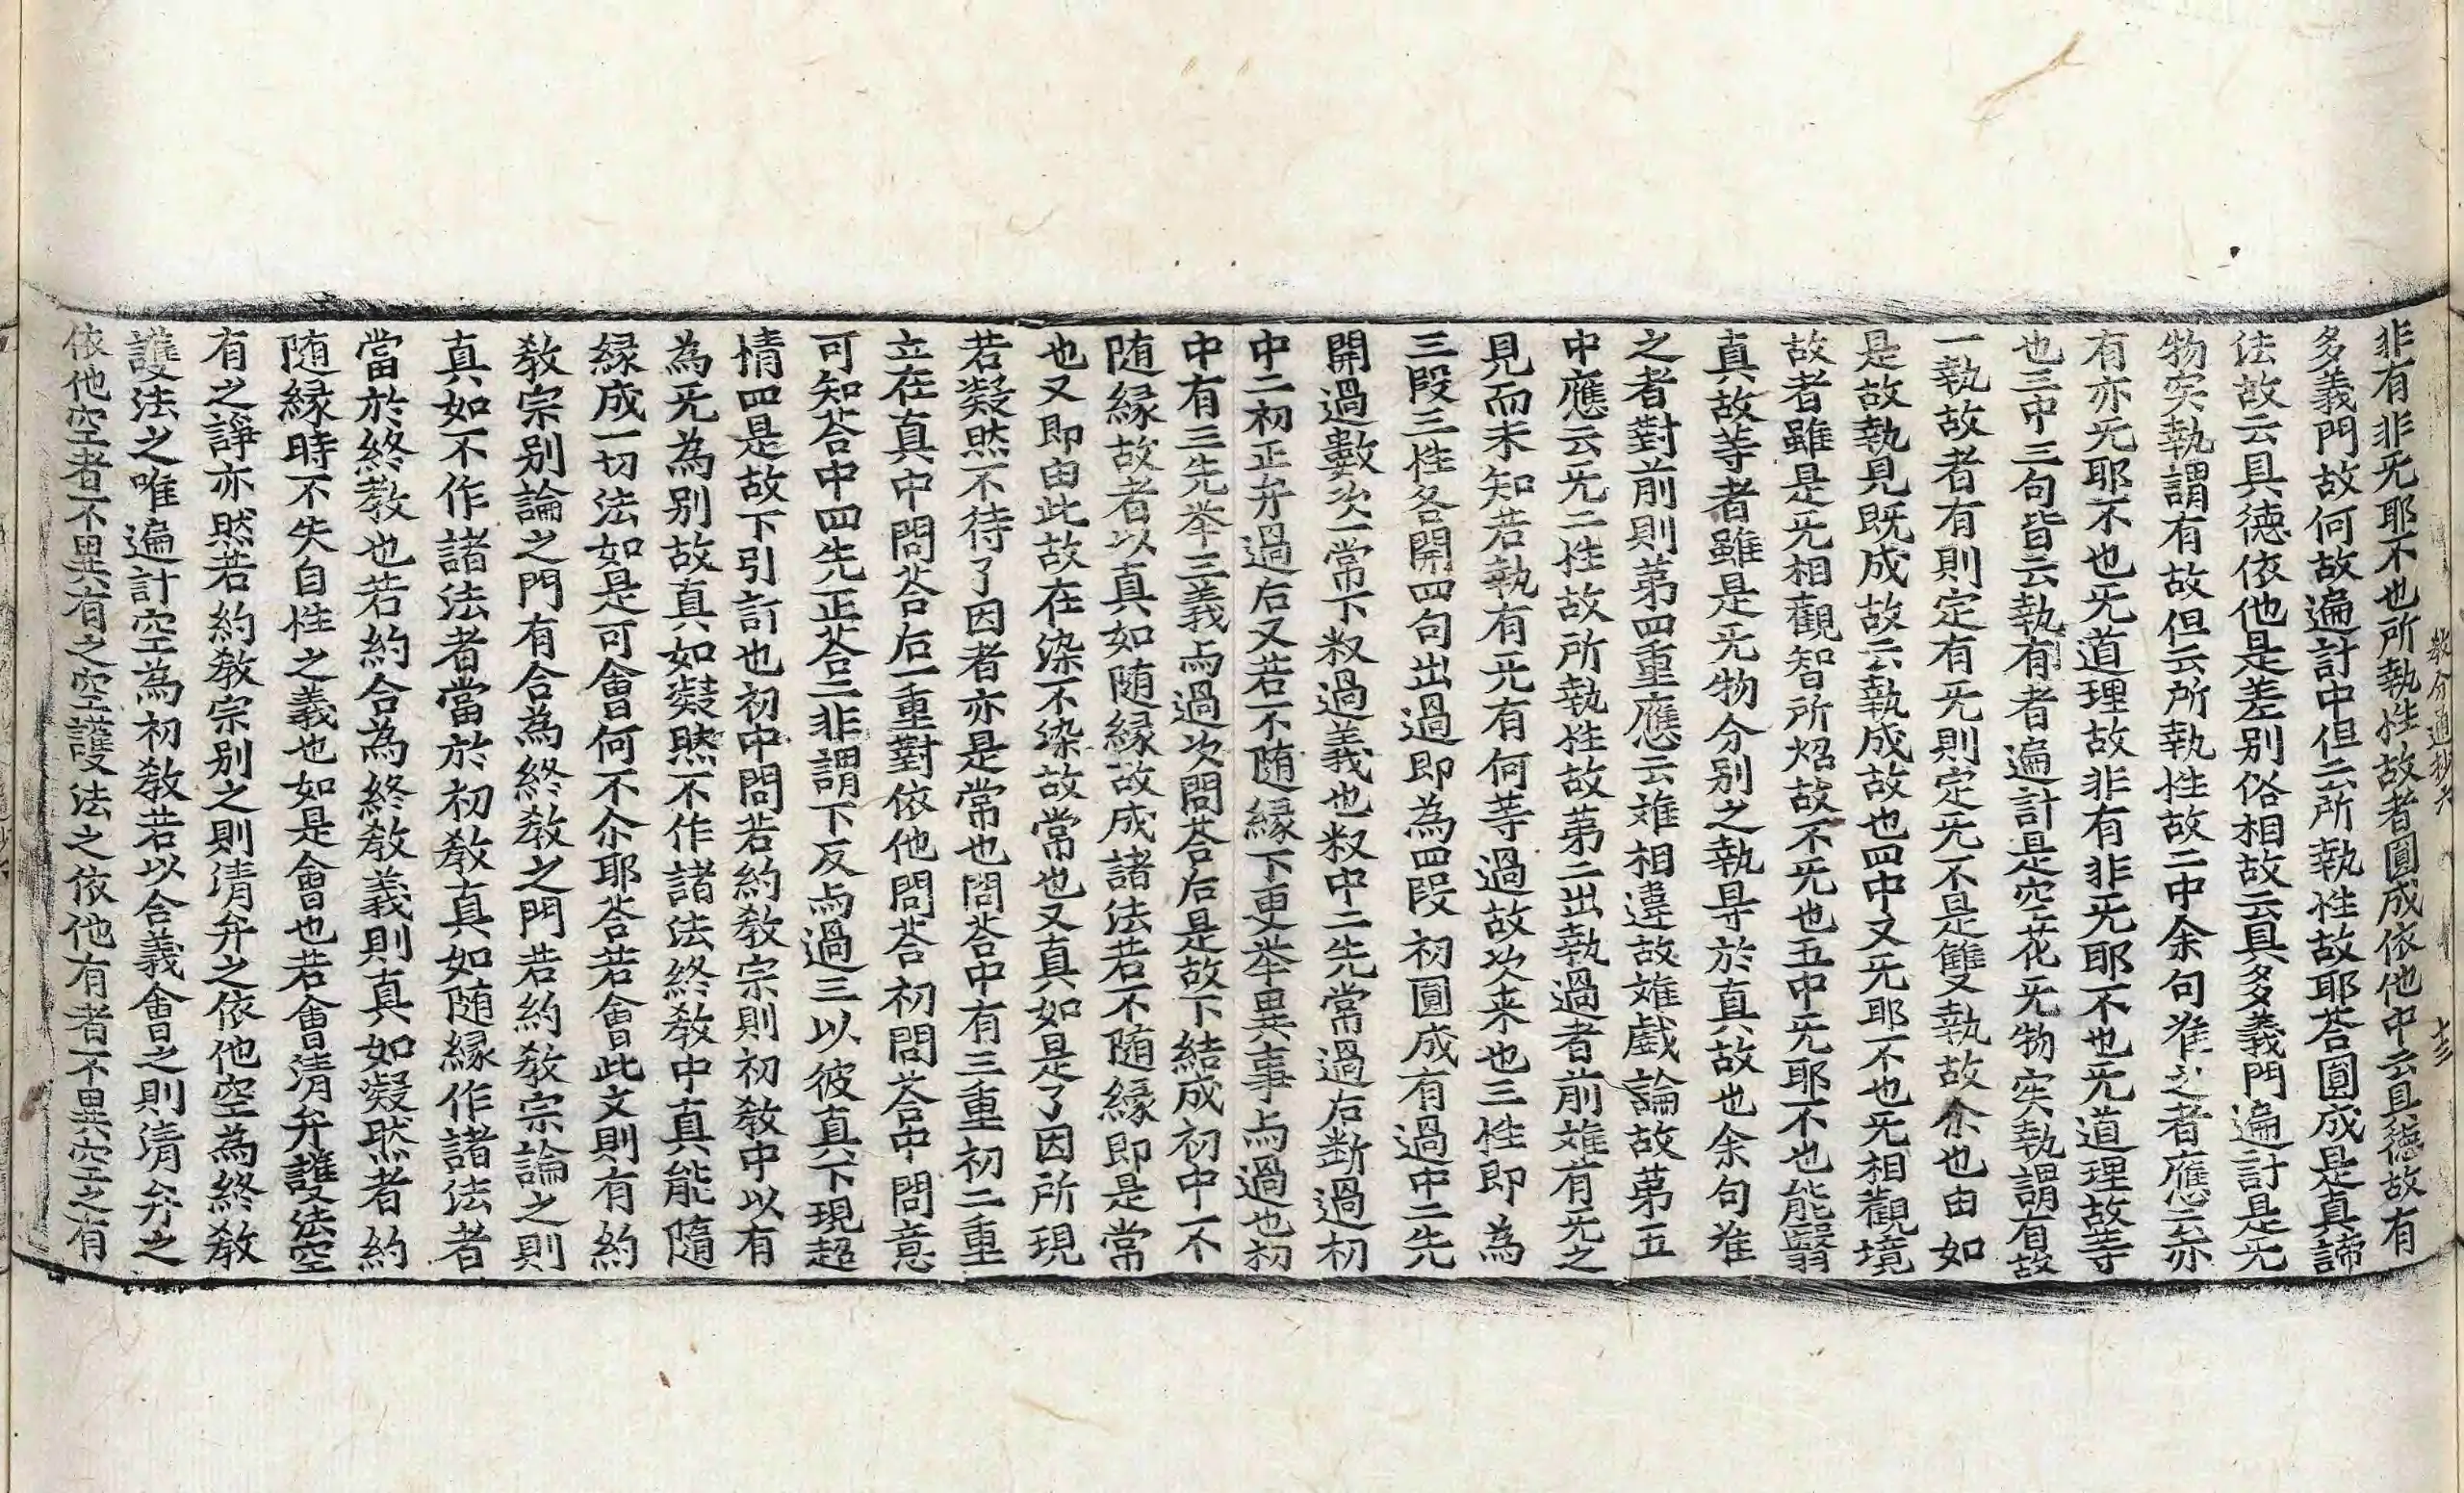 非有非无耶不也所執性故者圓成依他中云具德故有
多義門故何故遍計中但云所執性故耶荅圓成是真諦
法故云具德依他是差别俗相故云具多義門遍計是无
物宎執謂有故但云所執性故二中余句准之者應云亦
有亦无耶不也无道理故非有非无耶不也无道理故等
也三中三句皆云執有者遍計是空花无物宎執謂有故
一執故者有則定有无則定无不是雙執故余也由如
是故執見既成故云執成故也四中又无耶不也无相觀境
故者雖是无相觀智所炤故不无也五中无耶不也能翳
真故等者雖是无物分别之執㝵於真故也余句准
之者對前則苐四重應云難相違故難戱論故苐五
中應云无二性故所執性故苐二出執過者前難有无之
見而未知若執有无有何等過故次来也三性即為
三段三性各開四句出過即為四段初圓成有過中二先
開過數次一常下釈過義也釈中二先常過后断過初
中二初正弁過后又若不随緣下更举異事示過也初
中有三先举三義示過次問荅后是故下結成初中一不
随緣故者以真如随緣故成諸法若不随緣即是常
也又即由此故在染不染故常也又真如是了因所現
若凝然不待了因者亦是常也問荅中有三重初二重
立在真中問荅后一重對依他問荅初問荅中問意
可知荅中四先正荅二非謂下反示過三以彼真下現超
情四是故下引訂也初中問若約敎宗則初敎中以有
為无為别故真如凝然不作諸法終敎中真能隨
緣成一切法如是可會何不尒耶荅若會此文則有約
敎宗别論之門有合為終敎之門若約敎宗論之則
真如不作諸法者當於初敎真如随緣作諸法者
當於終敎也若約合為終敎義則真如凝然者約
随緣時不失自性之義也如是會也若會清弁護法空
有之諍亦然若約敎宗别之則清弁之依他空為終敎
護法之唯遍計空為初敎若以合義會之則清弁之
依他空者不異有之空護法之依他有者不異空之有